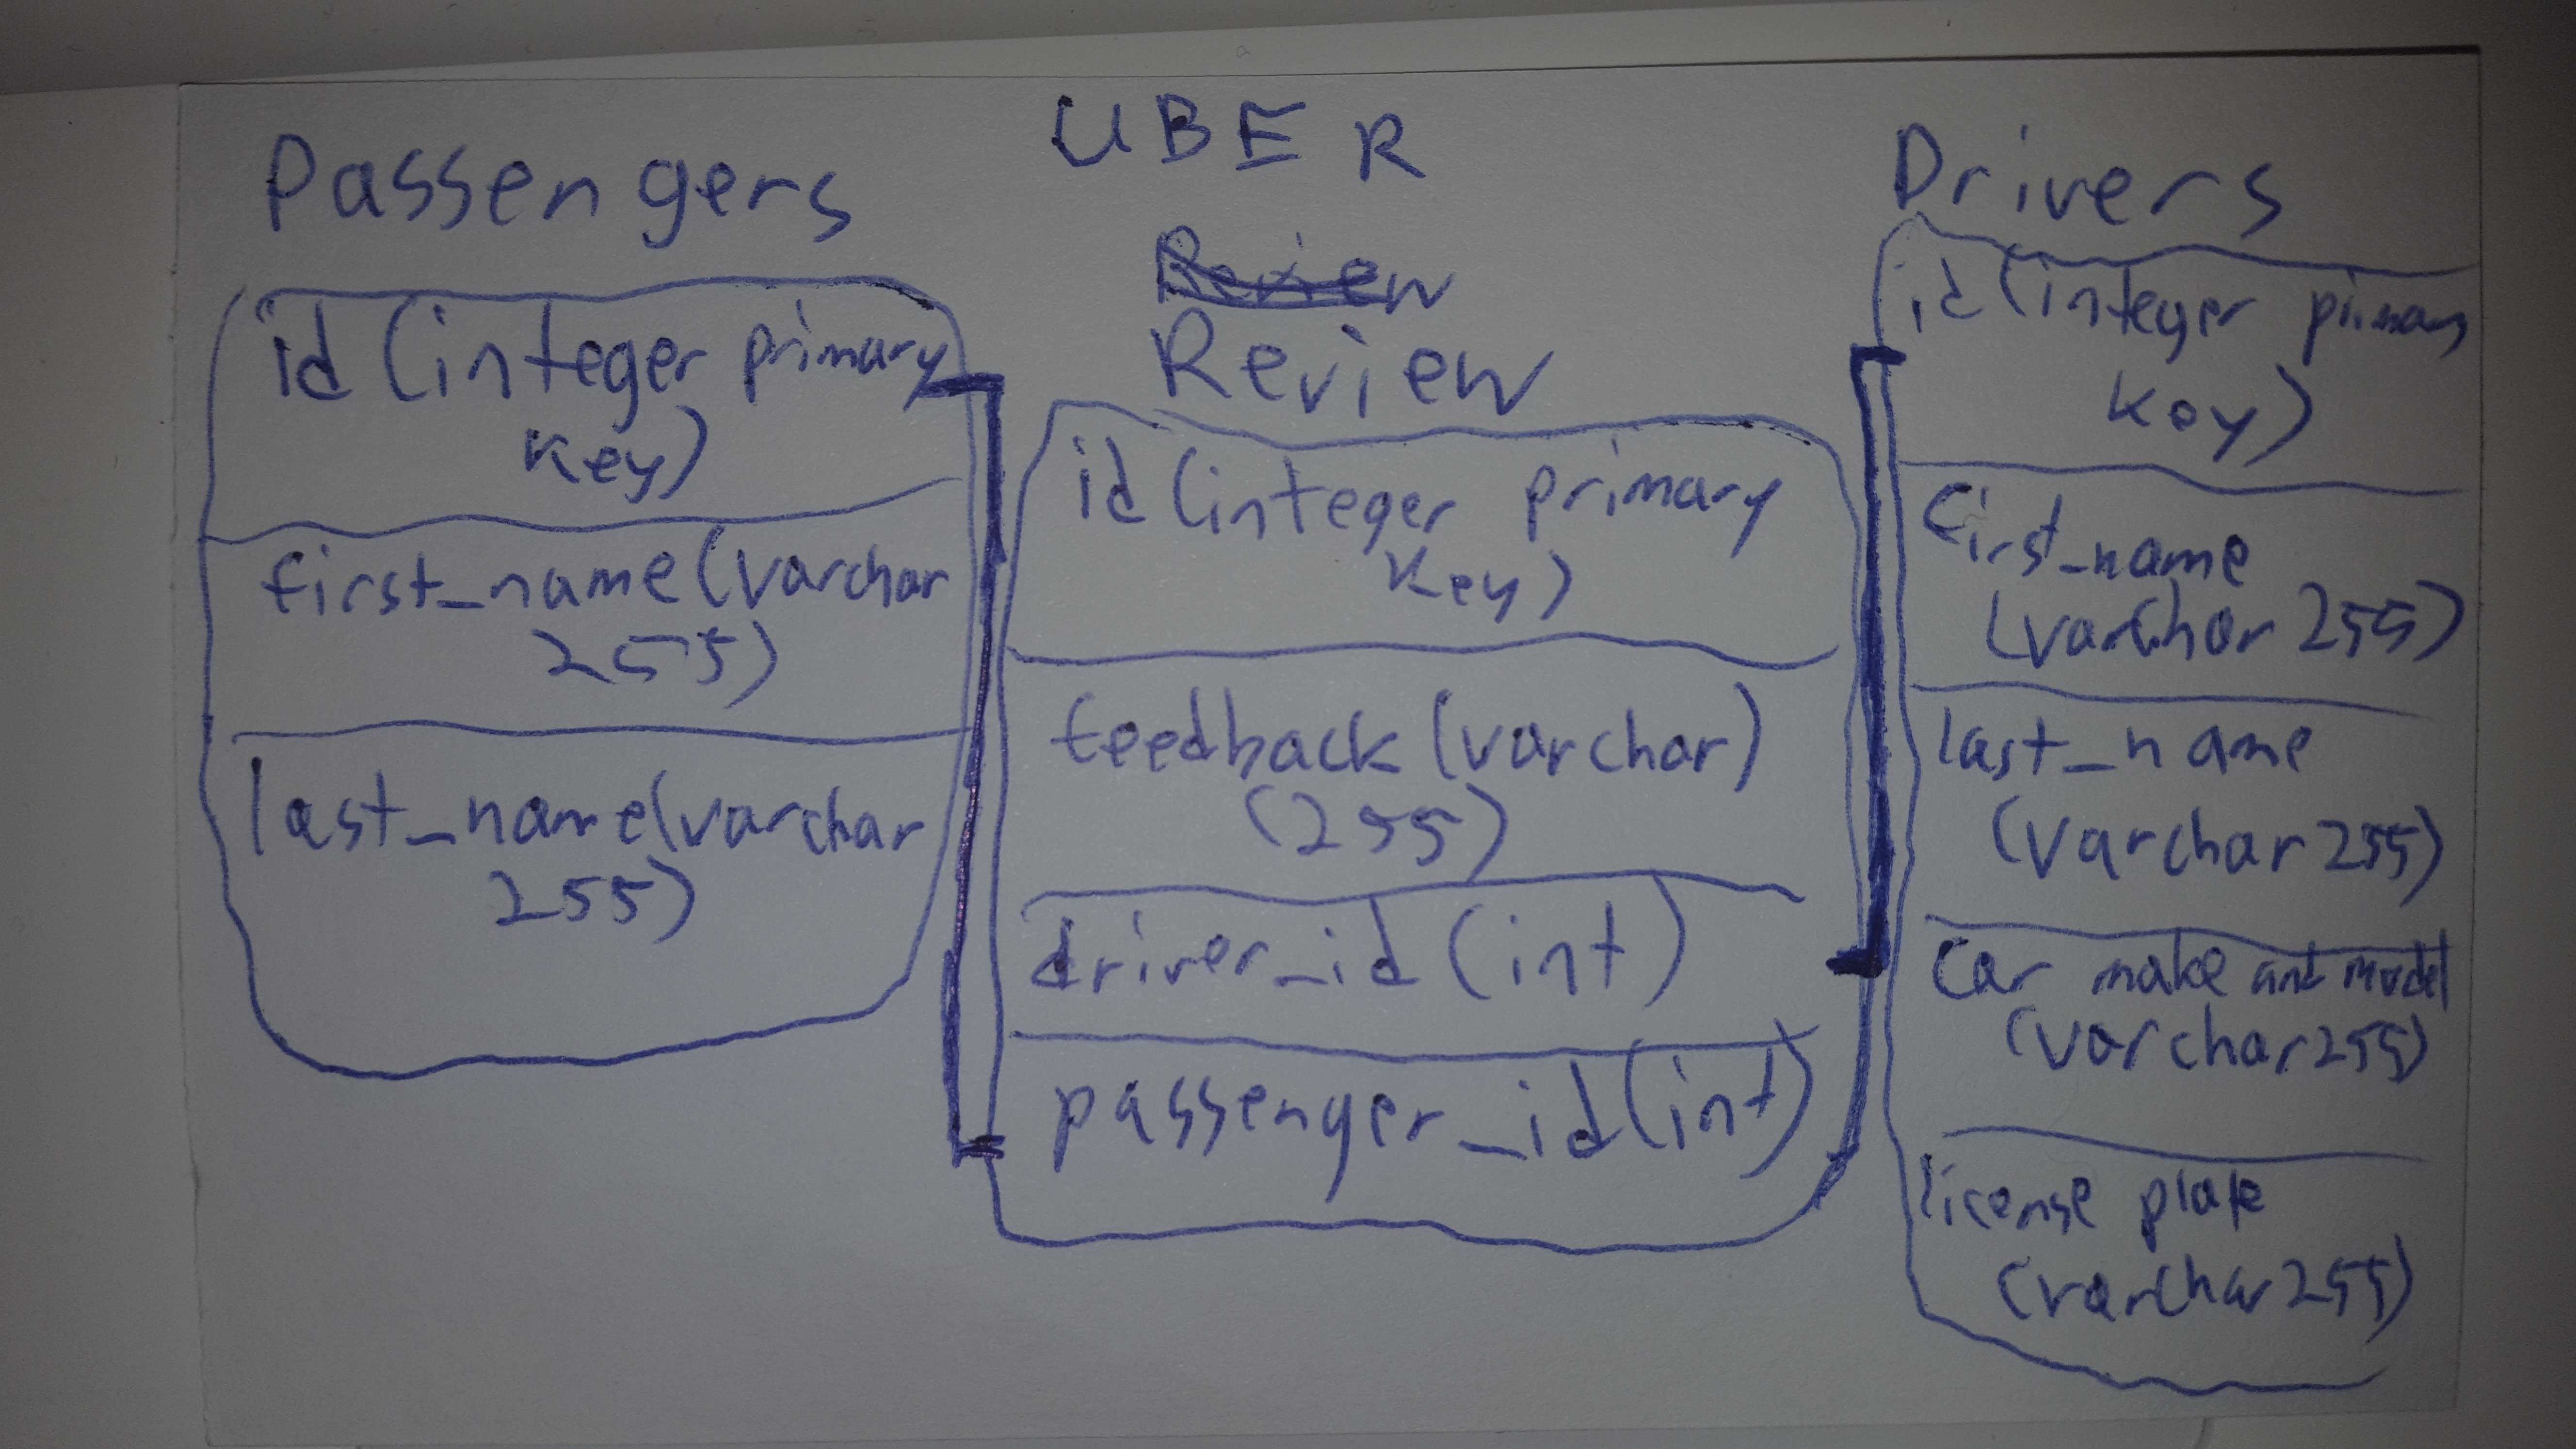 UBER
Passengers
id (integer primary
key)
first_name (varchar
255)
last_name (varchar
255)
Review
Review
id (integer primary
key)
feedback (varchar)
(255)
driver_id (int)
passenger_id (int)
Drivers
id (integer primary
key)
first_name
(varchar 255)
last_name
(varchar 255)
Car make and model
(varchar 255)
license plate
(varchar 255)